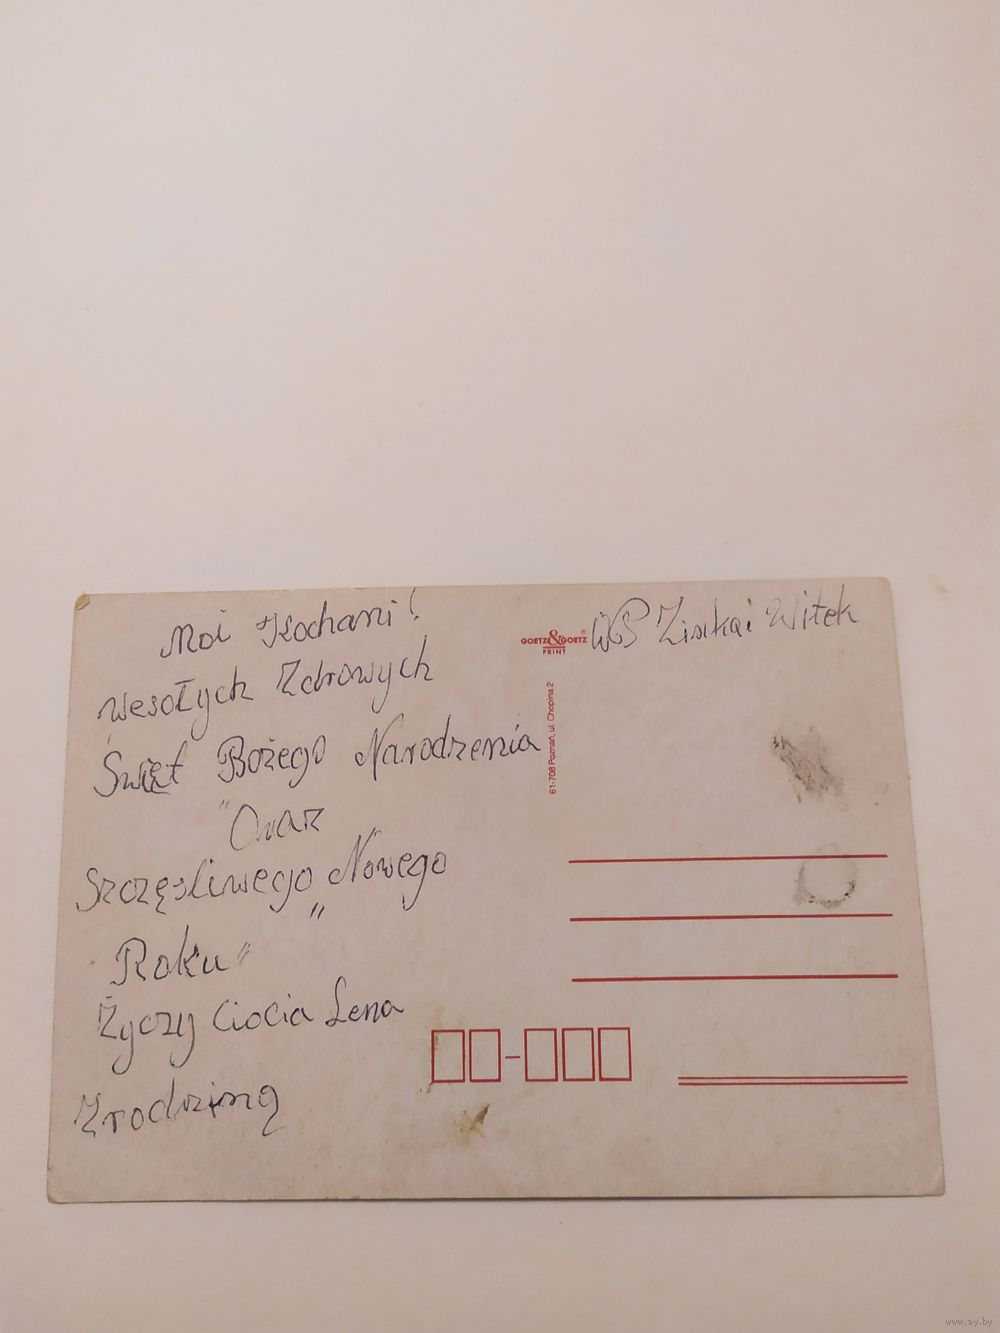 Moi Kochani!
Wesołych Zdrowych
Świąt Bożego Narodzenia
"Oraz
Szczęśliwego "Nowego
"
Roku"
Życzy Ciocia Lena
Zrodziną
GOETZ&GOETZ®
PRINT
61-708 Poznań, ul. Chopina 2
Witek
www.ay.by